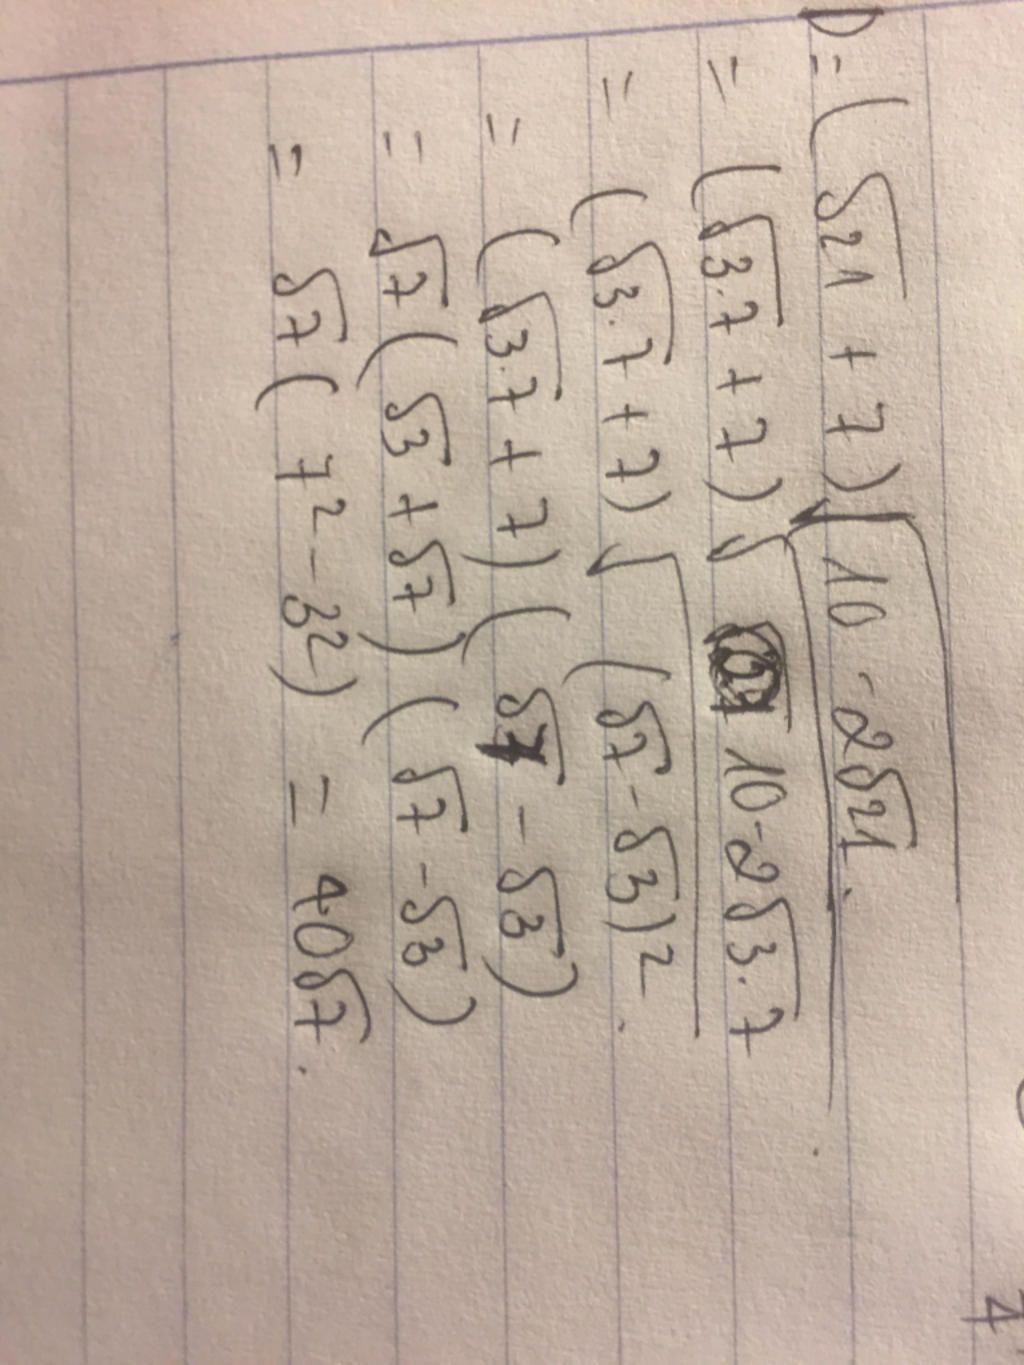 D = (√21 + 7)√(10 - 2√21).
= (√3.7 + 7)√(10 - 2√3.7)
= (√3.7 + 7)√((√7 - √3)²).
= (√3.7 + 7)(√7 - √3)
= √7(√3 + √7)(√7 - √3)
= √7(7² - 3²) = 40√7.